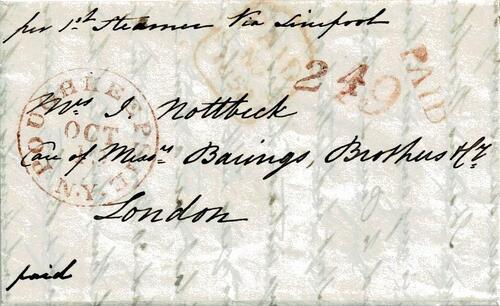 per 1st Steamer Via Liverpool
PAID
249
POUGHKEEPSIE N.Y.
OCT
Mrs J. Nottbeck
Care of Messrs Barings, Brothers & Co
London
paid